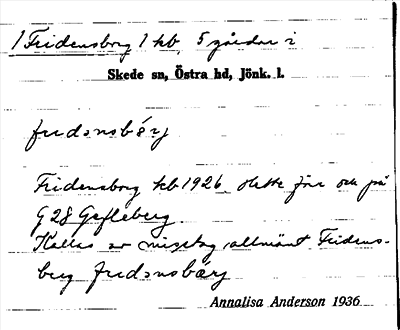 / Fridensborg / kb, 5 gårdar i
Skede sn, Östra hd, Jönk. l.
fridənsbórj
Fridensborg kb 1926. detta för och på
G 28 Gefleberg.
Kallas av misstag allmänt Fridens-
berg fridənsbärj
Annalisa Anderson 1936